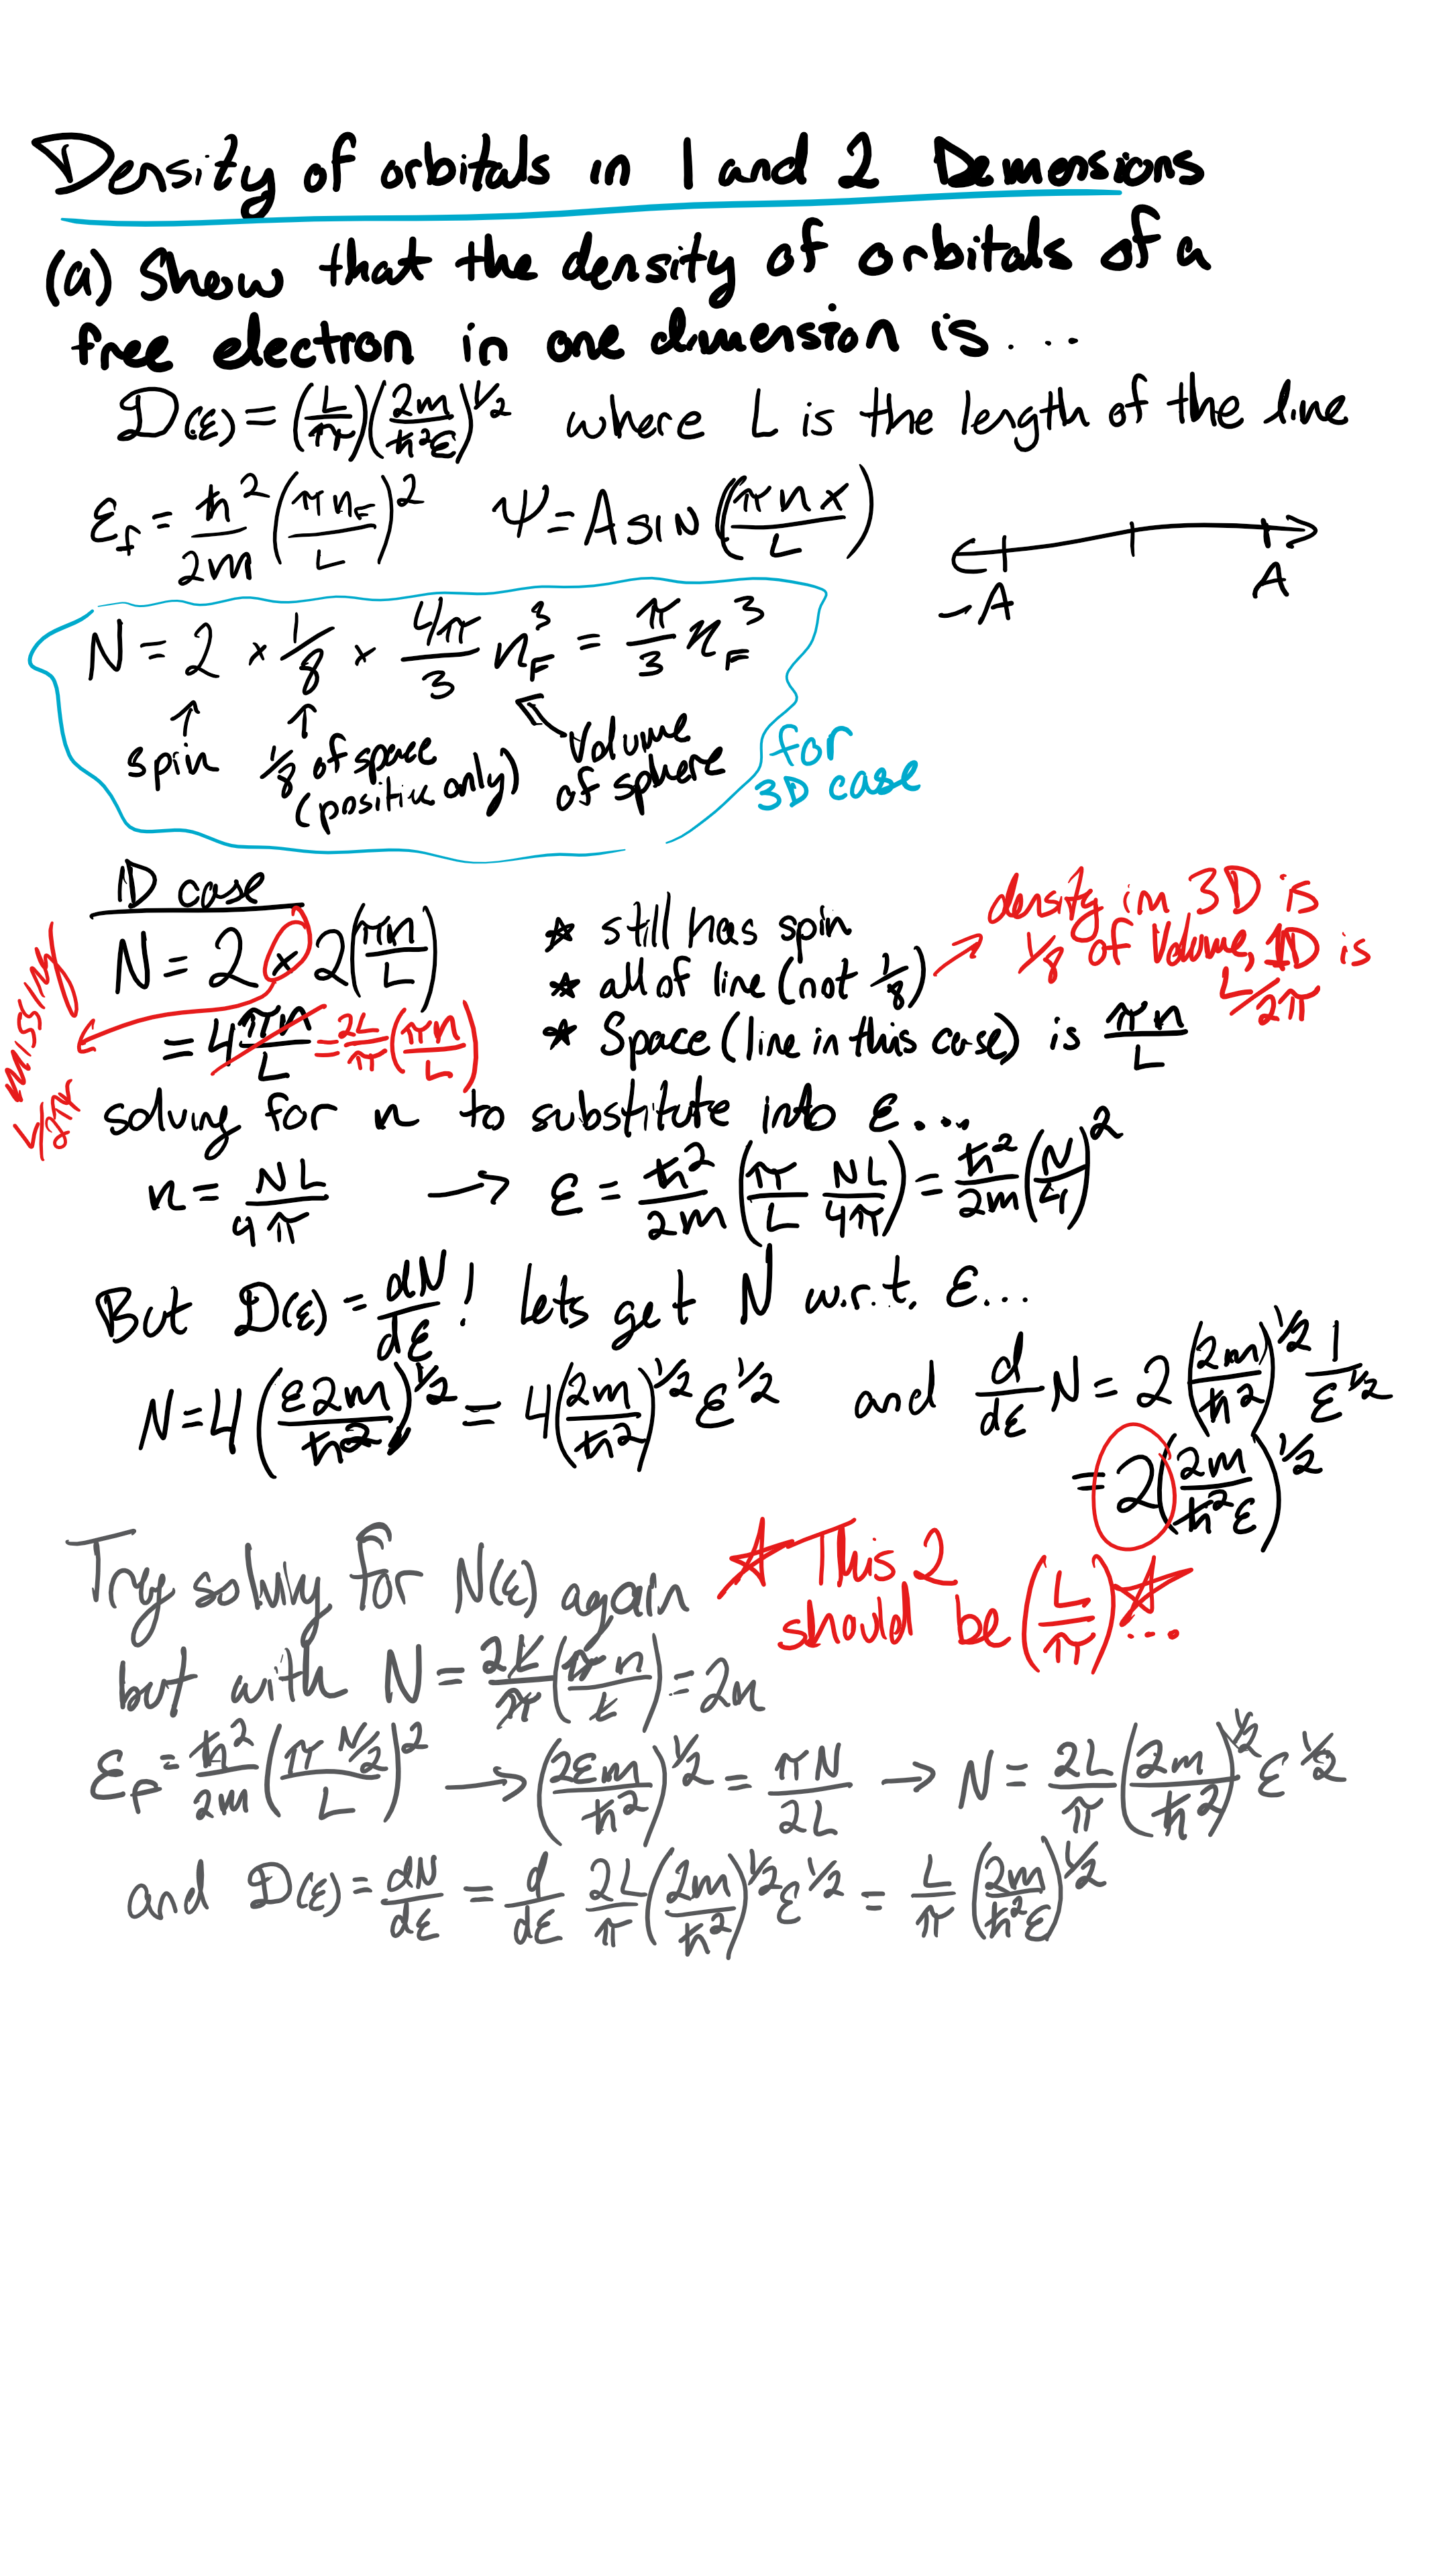 Density of orbitals in 1 and 2 Demensions
(a) Show that the density of orbitals of a
free electron in one dimension is....
𝒟(ε) = (L/π)(2m/ħ²ε)^1/2 where L is the length of the line
ε_f = ħ²/2m (πn_F/L)² Ψ = A sin((πnx/L)
-A A
N = 2 × 1/8 × 4π/3 n_F³ = π/3 n_F³
↑ spin
↑ 1/8 of space (positive only)
Volume of sphere
for 3D case
1D case
N = 2 × 2(πn/L)
= 4 πn/L = 2L/π (πn/L)
missing L/2π
☆ still has spin
☆ all of line (not 1/8) → density in 3D is 1/8 of Volume, 1D is L/2π
☆ Space (line in this case) is πn/L
solving for n to substitute into ε...
n = NL/4π → ε = ħ²/2m (π/L NL/4π) = ħ²/2m (N/4)²
But 𝒟(ε) = dN/dε! Lets get N w.r.t. ε...
N = 4(ε2m/ħ²)^1/2 = 4(2m/ħ²)^1/2 ε^1/2 and d/dε N = 2(2m/ħ²)^1/2 1/ε^1/2
= 2(2m/ħ²ε)^1/2
☆ This 2
should be (L/π)☆...
Try solving for N(ε) again
but with N = 2L/π (πn/L) = 2n
ε_F = ħ²/2m (π N/2 / L)² → (2εm/ħ²)^1/2 = πN/2L → N = 2L/π (2m/ħ²)^1/2 ε^1/2
and 𝒟(ε) = dN/dε = d/dε 2L/π (2m/ħ²)^1/2 ε^1/2 = L/π (2m/ħ²ε)^1/2